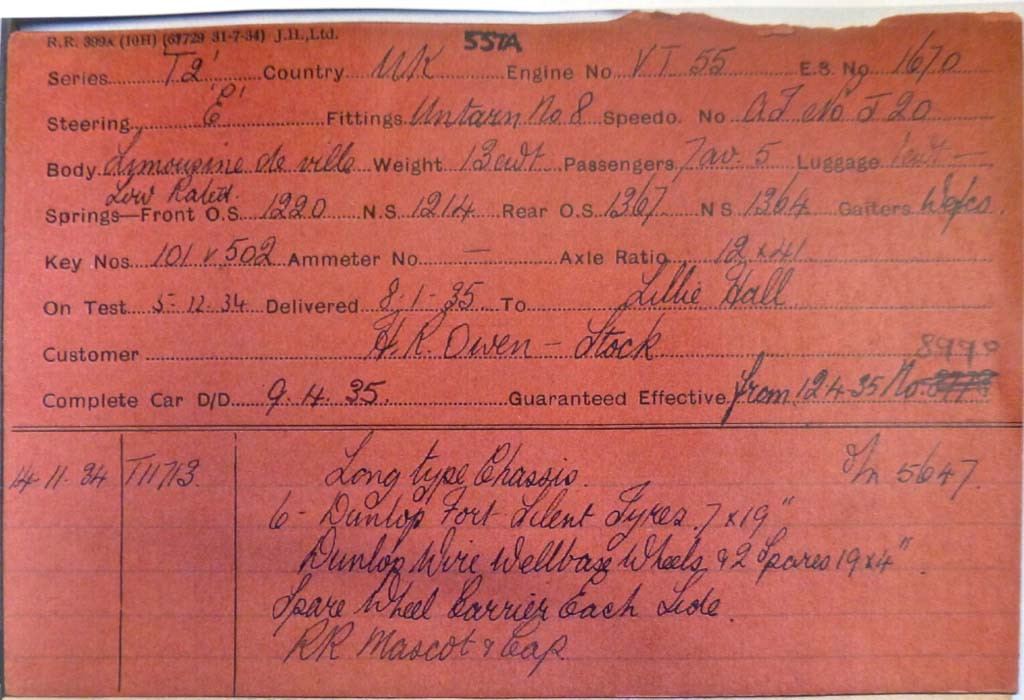 R.R. 399A (10H) (67729 31-7-34) J.H., Ltd. 55TA
Series T2' Country UK Engine No VT 55 E.S. No 1670
'D'
Steering E Fittings Untarn No 8 Speedo. No AT No J 20
Body Limousine de ville Weight 13 cwt Passengers 7 av. 5 Luggage 1 cwt —
Low Rated.
Springs—Front O.S. 1220 N.S. 1214 Rear O.S. 1367 N S 1364 Gaiters Wefco.
Key Nos 101 v 502 Ammeter No — Axle Ratio 12 x 41
On Test 5-12-34 Delivered 8-1-35 To Lillie Hall
Customer H.R. Owen - Stock
Complete Car D/D 9.4.35. Guaranteed Effective from 12-4-35 No. 8990
14-11-34 T11713. Long type Chassis. 5647.
6 - Dunlop Fort Silent Tyres. 7 x 19"
Dunlop Wire Wellbase Wheels & 2 Spares 19 x 4"
Spare Wheel Carrier Each Side
RR Mascot & Cap.